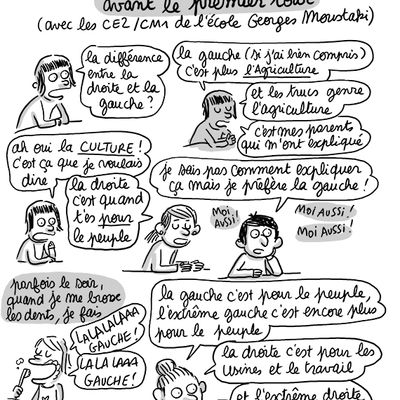 avant le premier tour
(avec les CE2/CM1 de l'école Georges Moustaki)
la différence
entre la
droite et la
gauche ?
la gauche (si j'ai bien compris)
c'est plus l'Agriculture
et les trucs genre
l'agriculture
c'est mes parents
qui m'ont expliqué
ah oui la CULTURE !
c'est ça que je voulais
dire
la droite
c'est quand
t'es pour
le peuple
je sais pas comment expliquer
ça mais je préfère la gauche !
MOI
AUSSI !
MOI AUSSI !
MOI AUSSI !
parfois le soir,
quand je me brosse
les dents, je fais
LALALALAAA
GAUCHE !
LALALAAA
GAUCHE !
la gauche c'est pour le peuple,
l'extrême gauche c'est encore plus
pour le peuple
la droite c'est pour les
usines et le travail
et l'extrême droite